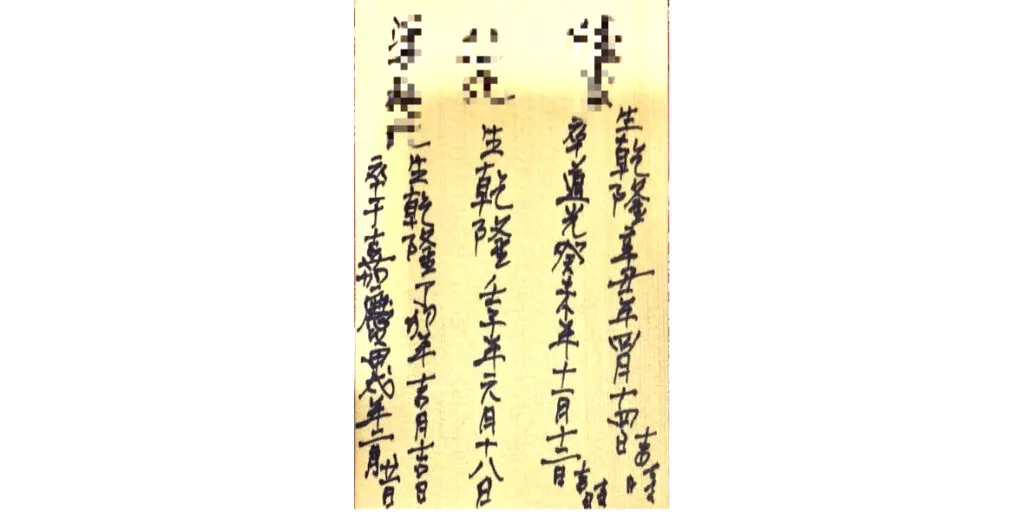 生乾隆辛丑年四月十四日吉時
卒道光癸未年十一月十二日吉時
生乾隆壬子年元月十八日
生乾隆丁卯年吉月吉日
卒于嘉慶甲戌年二月廿日